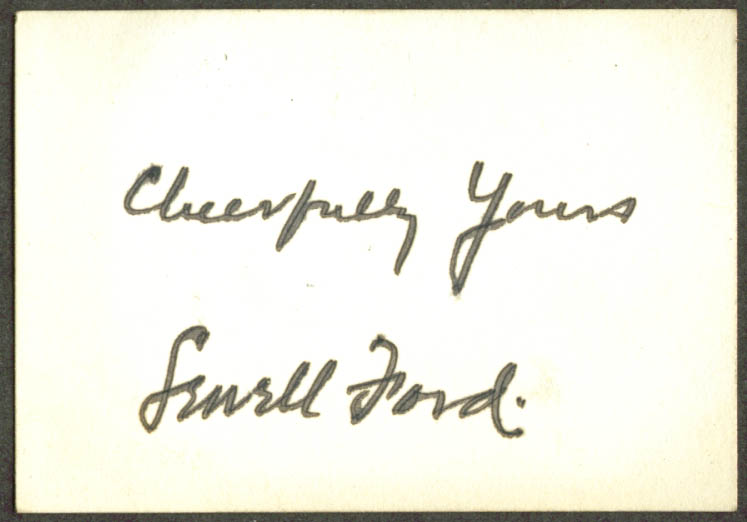 Cheerfully Yours
Sewell Ford.